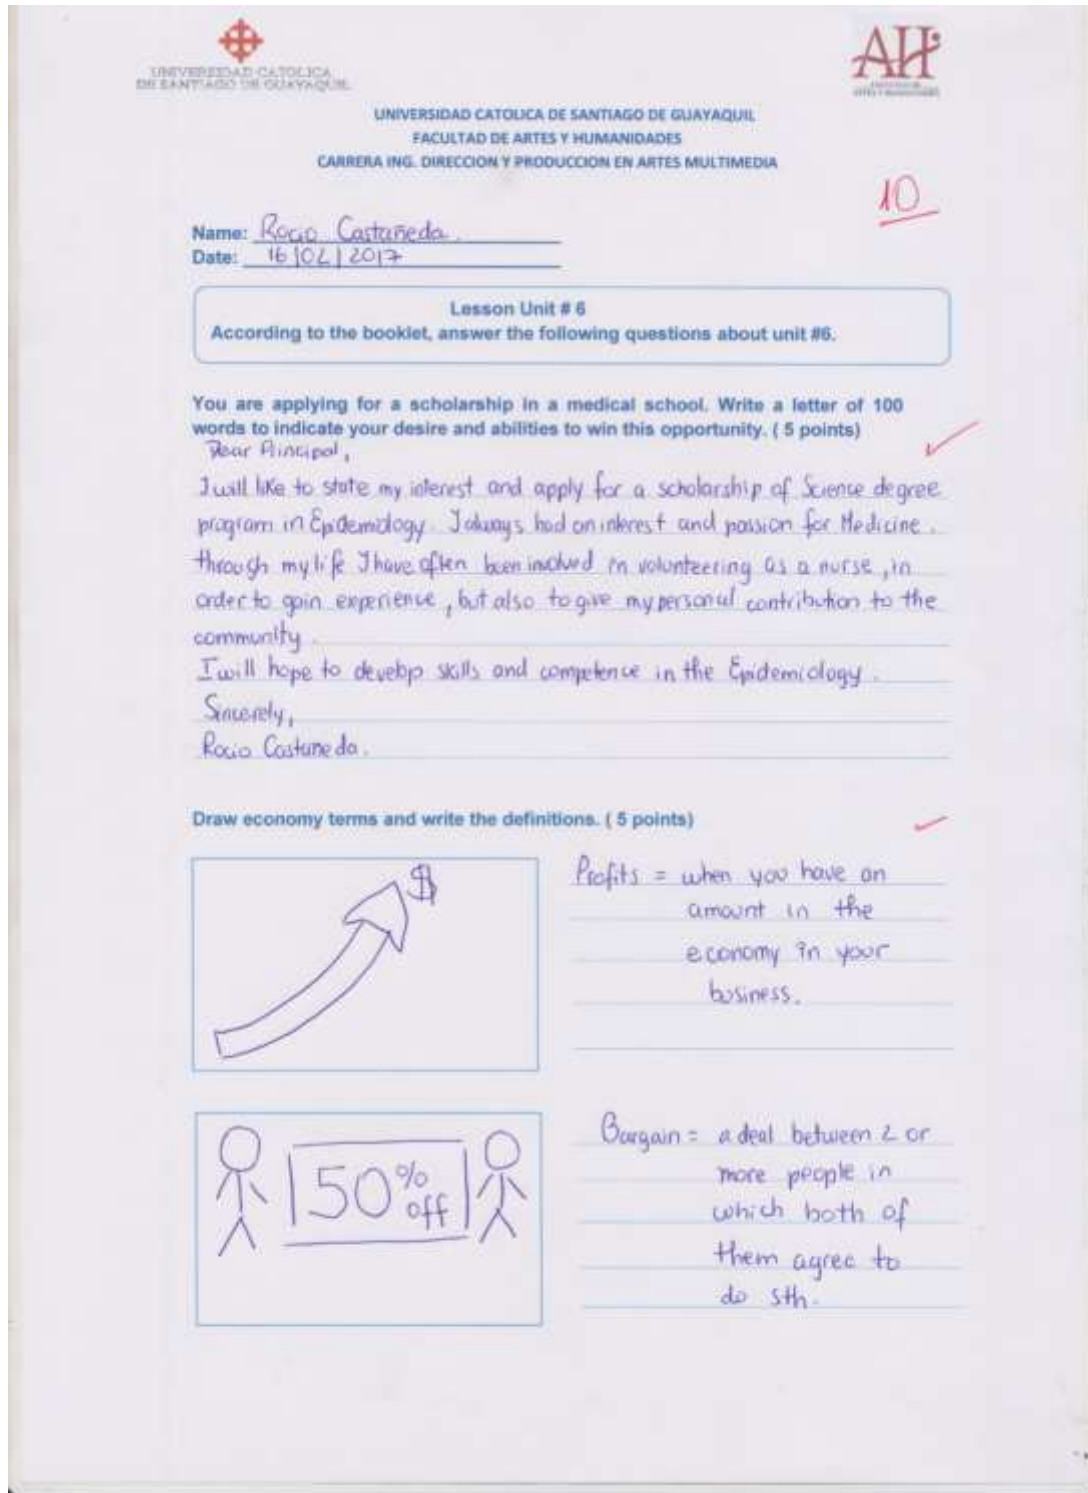 UNIVERSIDAD CATOLICA
DE SANTIAGO DE GUAYAQUIL
AH
UNIVERSIDAD CATOLICA DE SANTIAGO DE GUAYAQUIL
FACULTAD DE ARTES Y HUMANIDADES
CARRERA ING. DIRECCION Y PRODUCCION EN ARTES MULTIMEDIA
10
Name: Rocio Castañeda.
Date: 16/02/2017
Lesson Unit # 6
According to the booklet, answer the following questions about unit #6.
You are applying for a scholarship in a medical school. Write a letter of 100
words to indicate your desire and abilities to win this opportunity. ( 5 points)
Dear Principal,
I will like to state my interest and apply for a scholarship of Science degree
program in Epidemiology. I always had an interest and passion for Medicine.
through my life I have often been involved in volunteering as a nurse, in
order to gain experience, but also to give my personal contribution to the
community.
I will hope to develop skills and competence in the Epidemiology.
Sincerely,
Rocio Castaneda.
Draw economy terms and write the definitions. ( 5 points)
$
Profits = when you have an
amount in the
economy in your
business.
50% off
Bargain = a deal between 2 or
more people in
which both of
them agree to
do sth.